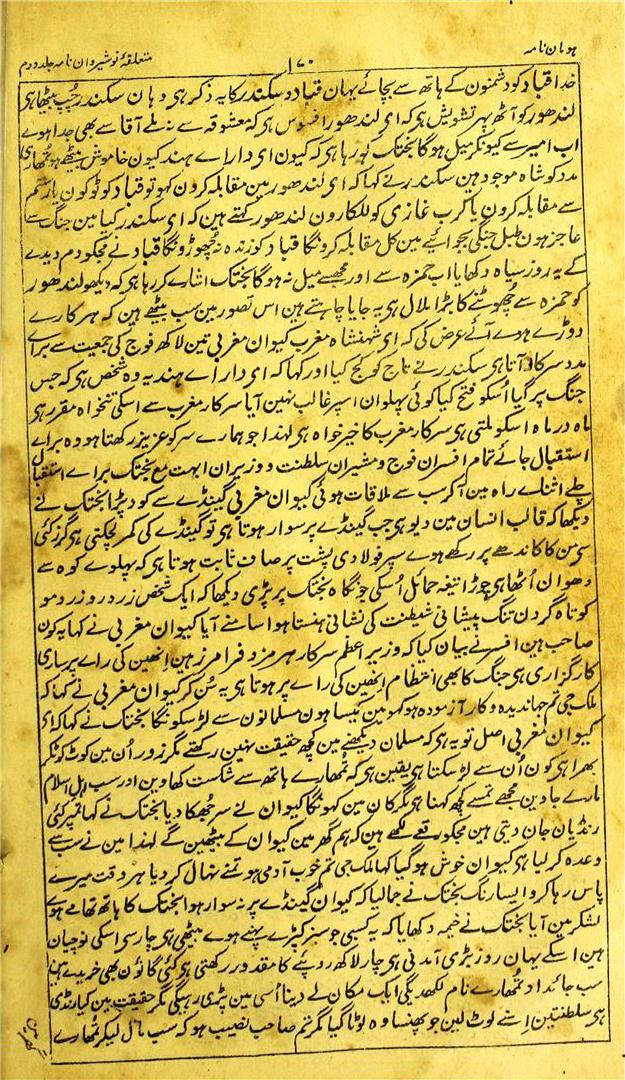 ہومان نامہ
۱۷۰
متعلقۂ نوشیروان نامہ جلد دوم
خدا قباد کو دشمنون کے ہاتھ سے بچائے یہان قباد و سکندر کا یہ ذکر ہی وہان سکندر چپ بیٹھا ہی
لندھور کو آٹھ پہر تشویش ہی کہ ای لندھور افسوس ہی کہ معشوقہ سے نہ ملے آقا سے بھی جدا ہوے
اب امیر سے کیونکر میل ہوگا بختک بول رہا ہی کہ کیون ای دارا ے ہند کیون خاموش بیٹھے ہو تمھاری
مدد کو شاہ موجود ہین سکندر نے کہا کہ ای لندھور مین مقابلہ کرون کہو تو قباد کو ٹوکون یا رستم
سے مقابلہ کرون یا کرب غازی کو للکارون لندھور کہتے ہین کہ ای سکندر کیا مین جنگ سے
عاجز ہون طبل جنگی بجوائیے مین کل مقابلہ کرونگا قباد کو زندہ نہ چھوڑونگا قباد نے مجکو دم دیدے
کے یہ روز سیاہ دکھایا اب حمزہ سے اور مجھسے میل نہ ہوگا بختک اشارے کر رہا ہی کہ دیکھو لندھور
کو حمزہ سے چھوٹنے کا بڑا ملال ہی یہ جایا چاہتے ہین اس تصور مین سب بیٹھے ہین کہ ہرکارے
دوڑے ہوے آئے عرض کی کہ ای شہنشاہ مغرب کیوان مغربی تین لاکھ فوج کی جمعیت سے براے
مدد سرکار آتا ہی سکندر نے تاج کو کج کیا اور کہا کہ ای دارا ے ہند یہ وہ شخص ہی کہ جس
جنگ پر گیا اُسکو فتح کیا کوئی پہلوان اسپر غالب نہین آیا سرکار مغرب سے اسکی تنخواہ مقرر ہی
ماہ در ماہ اسکو ملتی ہی سرکار مغرب کا خیر خواہ ہی لہذا جو ہمارے سر کو عزیز رکھتا ہو وہ براے
استقبال جائے تمام افسران فوج و مشیران سلطنت و وزیران ابہت مع بختک براے استقبال
چلے اثناے راہ مین آکر سب سے ملاقات ہوئی کیوان مغربی گینڈے سے کود پڑا بختک نے
دیکھا کہ قالب انسان مین دیو ہی جب گینڈے پر سوار ہوتا ہی تو گینڈے کی کمر لچکتی ہی گرز کئی
سی من کا کاندھے پر رکھے ہوے سپر فولادی پشت پر صاف ثابت ہوتا ہی کہ پہلوے کوہ سے
دھوان اُٹھا ہی چوڑا تیغہ حمائل اُسکی جو نگاہ بختک پر پڑی دیکھا کہ ایک شخص زرد رو زرد مو
کوتاہ گردن تنگ پیشانی شیطنت کی نشانی ہنستا ہوا سامنے آیا کیوان مغربی نے کہا یہ کون
صاحب ہین افسر نے بیان کیا کہ وزیر اعظم سرکار ہرمز و فرامرز ہین انھین کی راے پر ساری
کارگزاری ہی جنگ کا بھی انتظام انھین کی راے پر ہوتا ہی یہ سُن کر کیوان مغربی نے کہا کہ
ملک جی تم جہاندیدہ و کارآزمودہ ہو کہو مین کیسا ہون مسلمانون سے لڑ سکونگا بختک نے کہا کہ ای
کیوان مغربی اصل تو یہ ہی کہ مسلمان دیکھنے مین کچھ حقیقت نہین رکھتے مگر زور اُن مین کوٹ کوٹکر
بھرا ہی کون اُن سے لڑ سکتا ہی یقین ہی کہ تمھارے ہاتھ سے شکست کھاوین اور سب اہل اسلام
مارے جاوین مجھے تمسے کچھ کہنا ہی مگر کان مین کہونگا کیوان نے سر جھکا دیا بختک نے کہا تمپر کئی
رنڈیان جان دیتی ہین مجکو رقعے لکھے ہین کہ ہم گھر مین کیوان کے بیٹھین گے لہذا مین نے سب سے
وعدہ کر لیا ہی کیوان خوش ہو گیا کہا ملک جی تم خوب آدمی ہو تمنے نہال کر دیا ہر وقت میرے
پاس رہا کرو ایسا رنگ بختک نے جمالیا کہ کیوان گینڈے پر نہ سوار ہوا بختک کا ہاتھ تھامے ہوے
لشکر مین آیا بختک نے خیمہ دکھایا کہ یہ کسبی جو سبز کپڑے پہنے ہوے بیٹھی ہی چار سی اسکی نوچیان
ہین اسکے یہان روز بڑی آمدنی ہی چار لاکھ روپئے کا مقدور رکھتی ہی کئی گانون بھی خریدے ہین
سب جائداد تمھارے نام لکھدیگی ایک مکان لے دینا اُسی مین پڑی رہیگی مگر حقیقت مین کیا رنڈی
ہی سلطنتین اسنے لوٹ لین جو پھنسا وہ لوٹا گیا مگر تم صاحب نصیب ہو کہ سب مال لیکر تمھارے